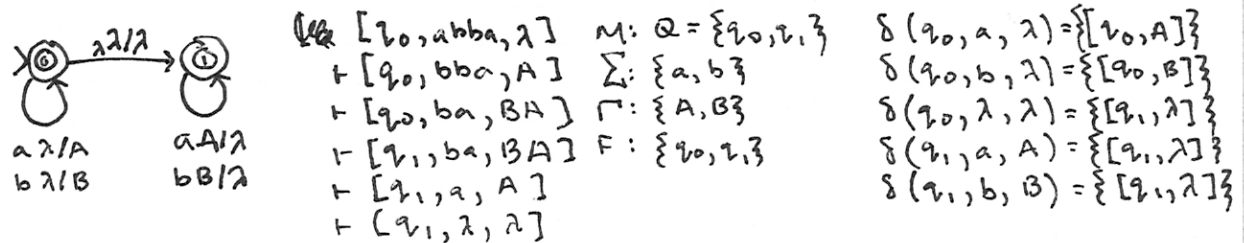 λλ/λ
0
1
aλ/A
bλ/B
aA/λ
bB/λ
[q₀, abba, λ]
⊢ [q₀, bba, A]
⊢ [q₀, ba, BA]
⊢ [q₁, ba, BA]
⊢ [q₁, a, A]
⊢ [q₁, λ, λ]
M: Q = {q₀, q₁}
Σ: {a, b}
Γ: {A, B}
F: {q₀, q₁}
δ(q₀, a, λ) = {[q₀, A]}
δ(q₀, b, λ) = {[q₀, B]}
δ(q₀, λ, λ) = {[q₁, λ]}
δ(q₁, a, A) = {[q₁, λ]}
δ(q₁, b, B) = {[q₁, λ]}